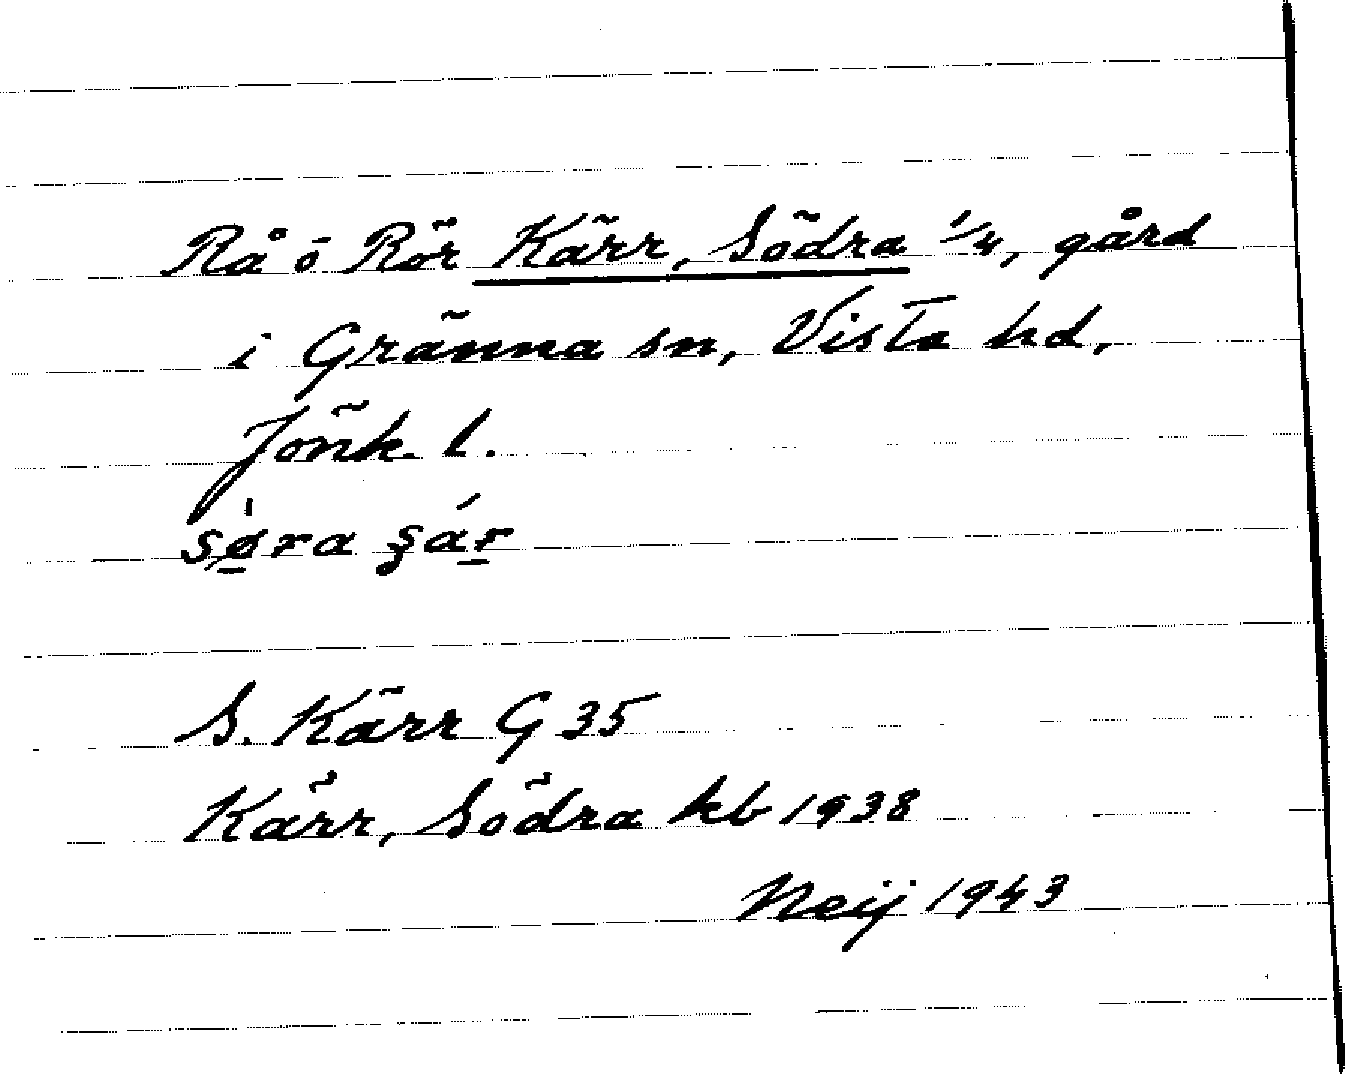 Rå ö Rör Kärr, Södra 1/4, gård
i Gränna sn, Vista hd,
Jönk. l.
S. Kärr G 35
Kärr, Södra kb 1938
Neij 1943